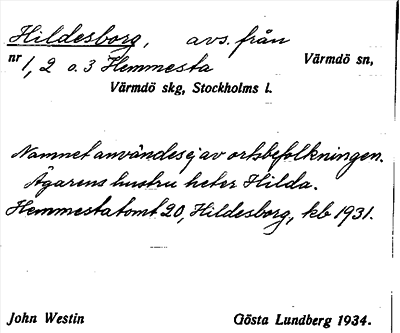 Hildesborg, avs. från
nr 1, 2 o. 3 Hemmesta Värmdö sn,
Värmdö skg, Stockholms l.
Namnet användes ej av ortsbefolkningen.
Ägarens hustru heter Hilda.
Hemmestatomt 20, Hildesborg, kb 1931.
John Westin Gösta Lundberg 1934.